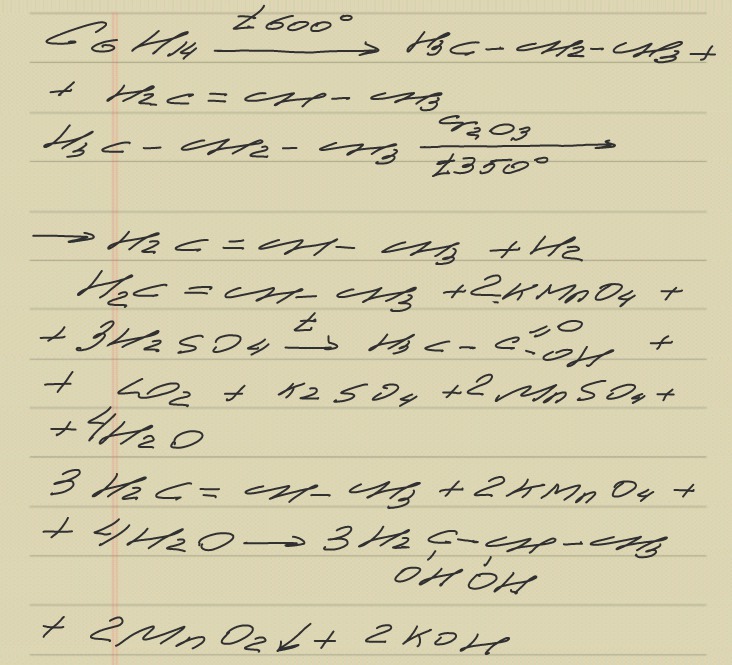 C6H14 t600° → H3C-CH2-CH3 +
+ H2C=CH-CH3
H3C-CH2-CH3 Cr2O3 t350° →
→ H2C=CH-CH3 + H2
H2C=CH-CH3 + 2KMnO4 +
+ 3H2SO4 t → H3C-C=O-OH +
+ CO2 + K2SO4 + 2MnSO4 +
+ 4H2O
3H2C=CH-CH3 + 2KMnO4 +
+ 4H2O → 3H2C-CH-CH3
OH OH
+ 2MnO2↓ + 2KOH